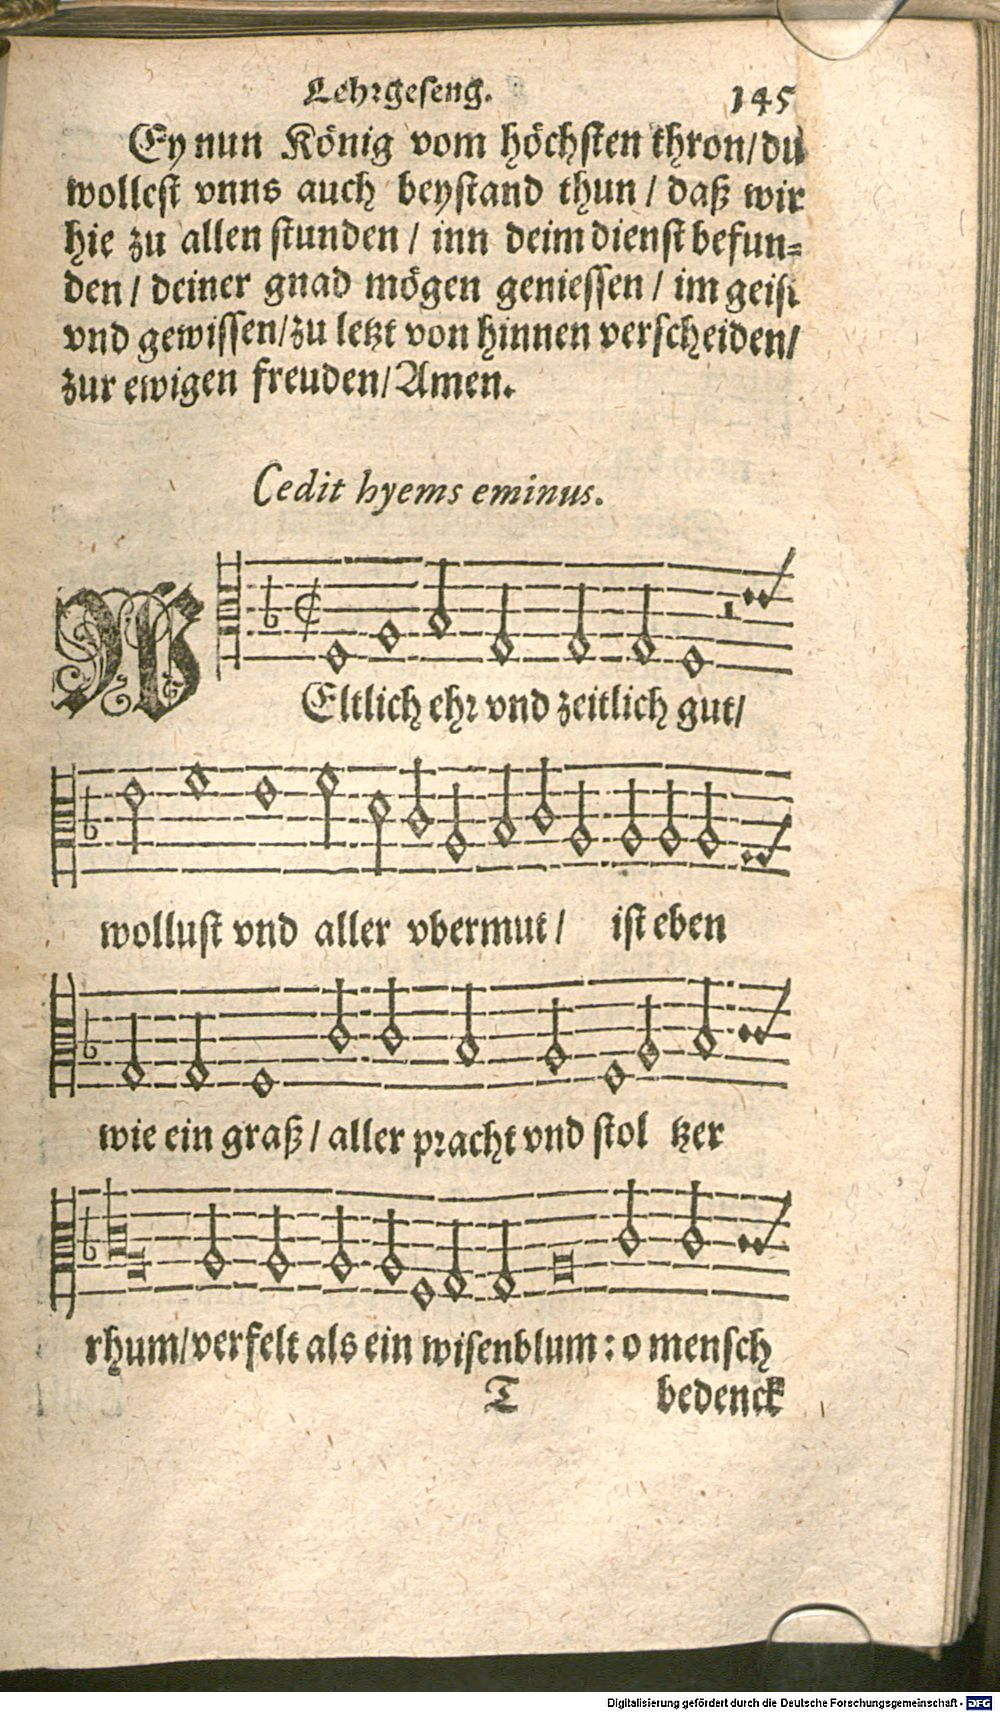 Lehrgeseng. 145
Ey nun König vom höchsten thron/ du
wollest vnns auch beystand thun / daß wir
hie zu allen stunden / inn deim dienst befun-
den / deiner gnad mögen geniessen / im geist
vnd gewissen/ zu letzt von hinnen verscheiden/
zur ewigen freuden/ Amen.
Cedit hyems eminus.
WEltlich ehr vnd zeitlich gut/
wollust vnd aller vbermut / ist eben
wie ein graß / aller pracht vnd stol tzer
rhum/ verfelt als ein wisenblum : o mensch
T bedenck
Digitalisierung gefördert durch die Deutsche Forschungsgemeinschaft - DFG